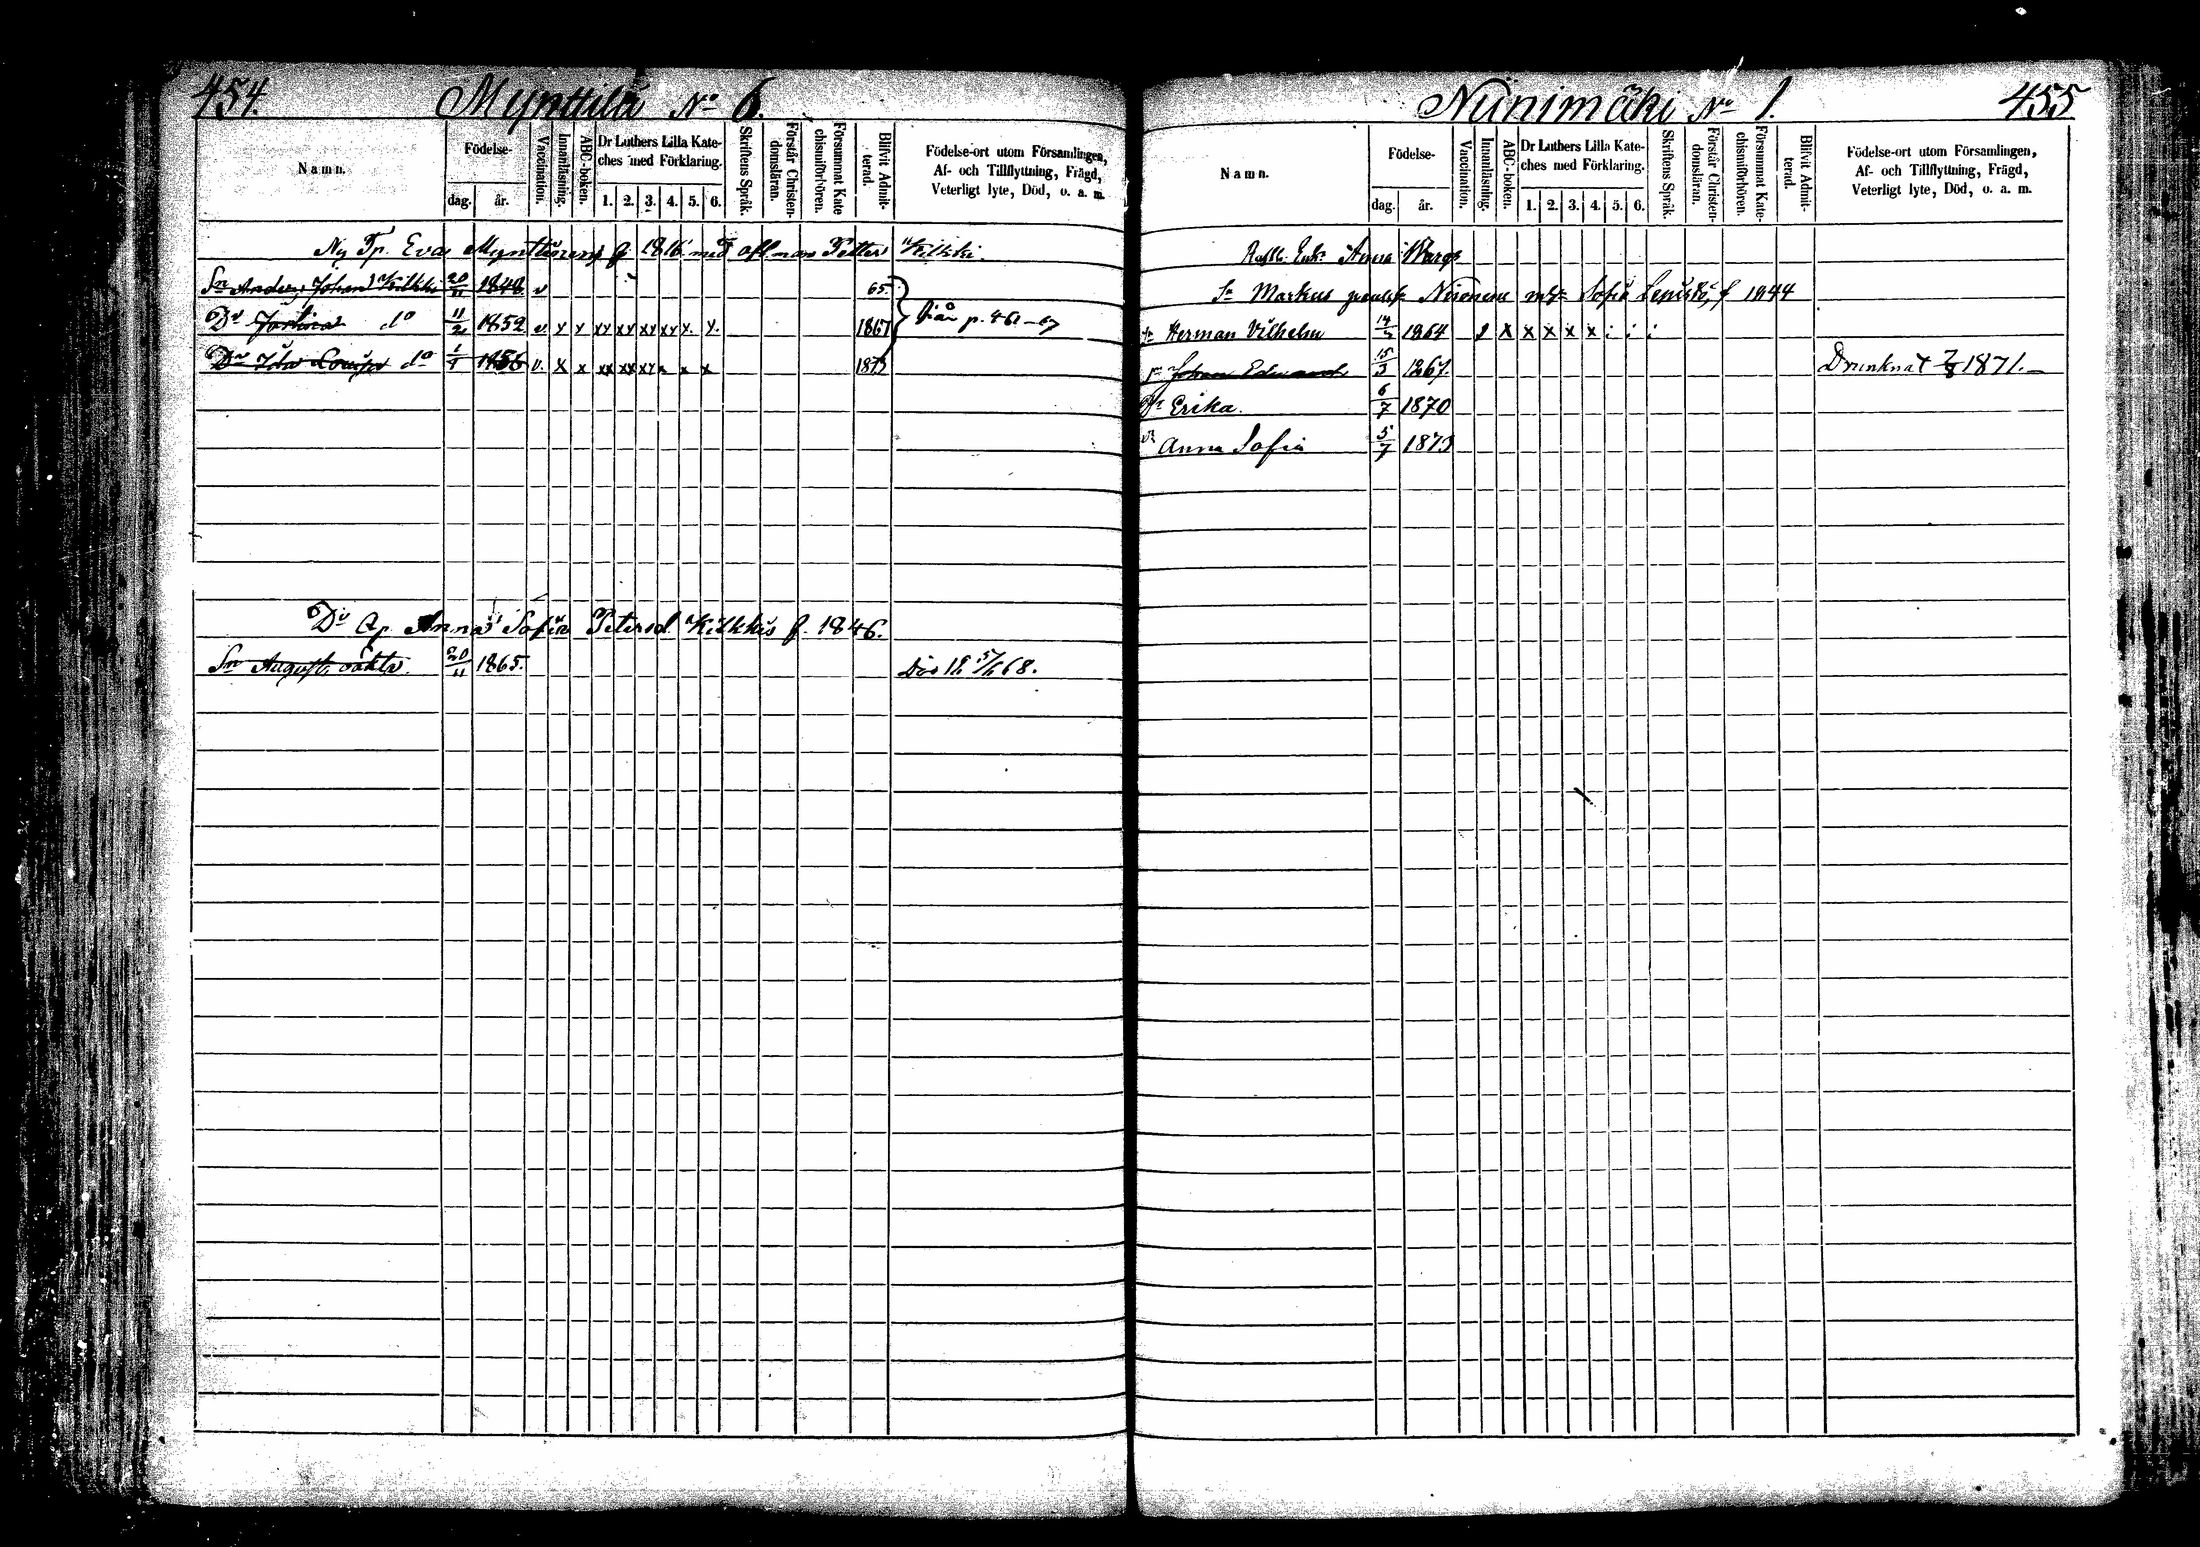 454.
Mynttilä No 6.
Namn.
Födelse-
dag.
år.
Vaccination.
Innanläsning.
ABC-boken.
Dr Luthers Lilla Kate-
ches med Förklaring.
1. 2. 3. 4. 5. 6.
Skriftens Språk.
Förstår Christen-
domsläran.
Försummat Kate
chismiförhören.
Blifvit Admit-
terad.
Födelse-ort utom Församlingen,
Af- och Tillflyttning, Frägd,
Veterligt lyte, Död, o. a. m.
Ny Tp. Eva Mynttinen f 1816 med afl. man Petter Kilkki.
Sn Anders Johan Kilkki 20/11 1848 v 65
Dr do 11/2 1852 v x x xx xx xx xx x. x. 1867 p. 461-67
Dr Ida Lovisa do 1/9 1856 v. x x xx xx xx x x x 1873
Dr Ap Anna Sofia Petersd. Kilkkis f. 1846.
Sn August, oäkta. 20/11 1865. Död 5/6 68.
455
Niinimäki No 1.
Namn.
Födelse-
dag.
år.
Vaccination.
Innanläsning.
ABC-boken.
Dr Luthers Lilla Kate-
ches med Förklaring.
1. 2. 3. 4. 5. 6.
Skriftens Språk.
Förstår Christen-
domsläran.
Försummat Kate-
chismiförhören.
Blifvit Admit-
terad.
Födelse-ort utom Församlingen,
Af- och Tillflyttning, Frägd,
Veterligt lyte, Död, o. a. m.
Enk. Anna Warg
Sn Markus Niironens Sofia f 1844
Herman Vilhelm 1864 x x x x x
Sn Johan Edward 15/3 1867. Drunknat 7/8 1871.
Dr Erika. 6/7 1870
Dr Anna Sofia 5/7 1873